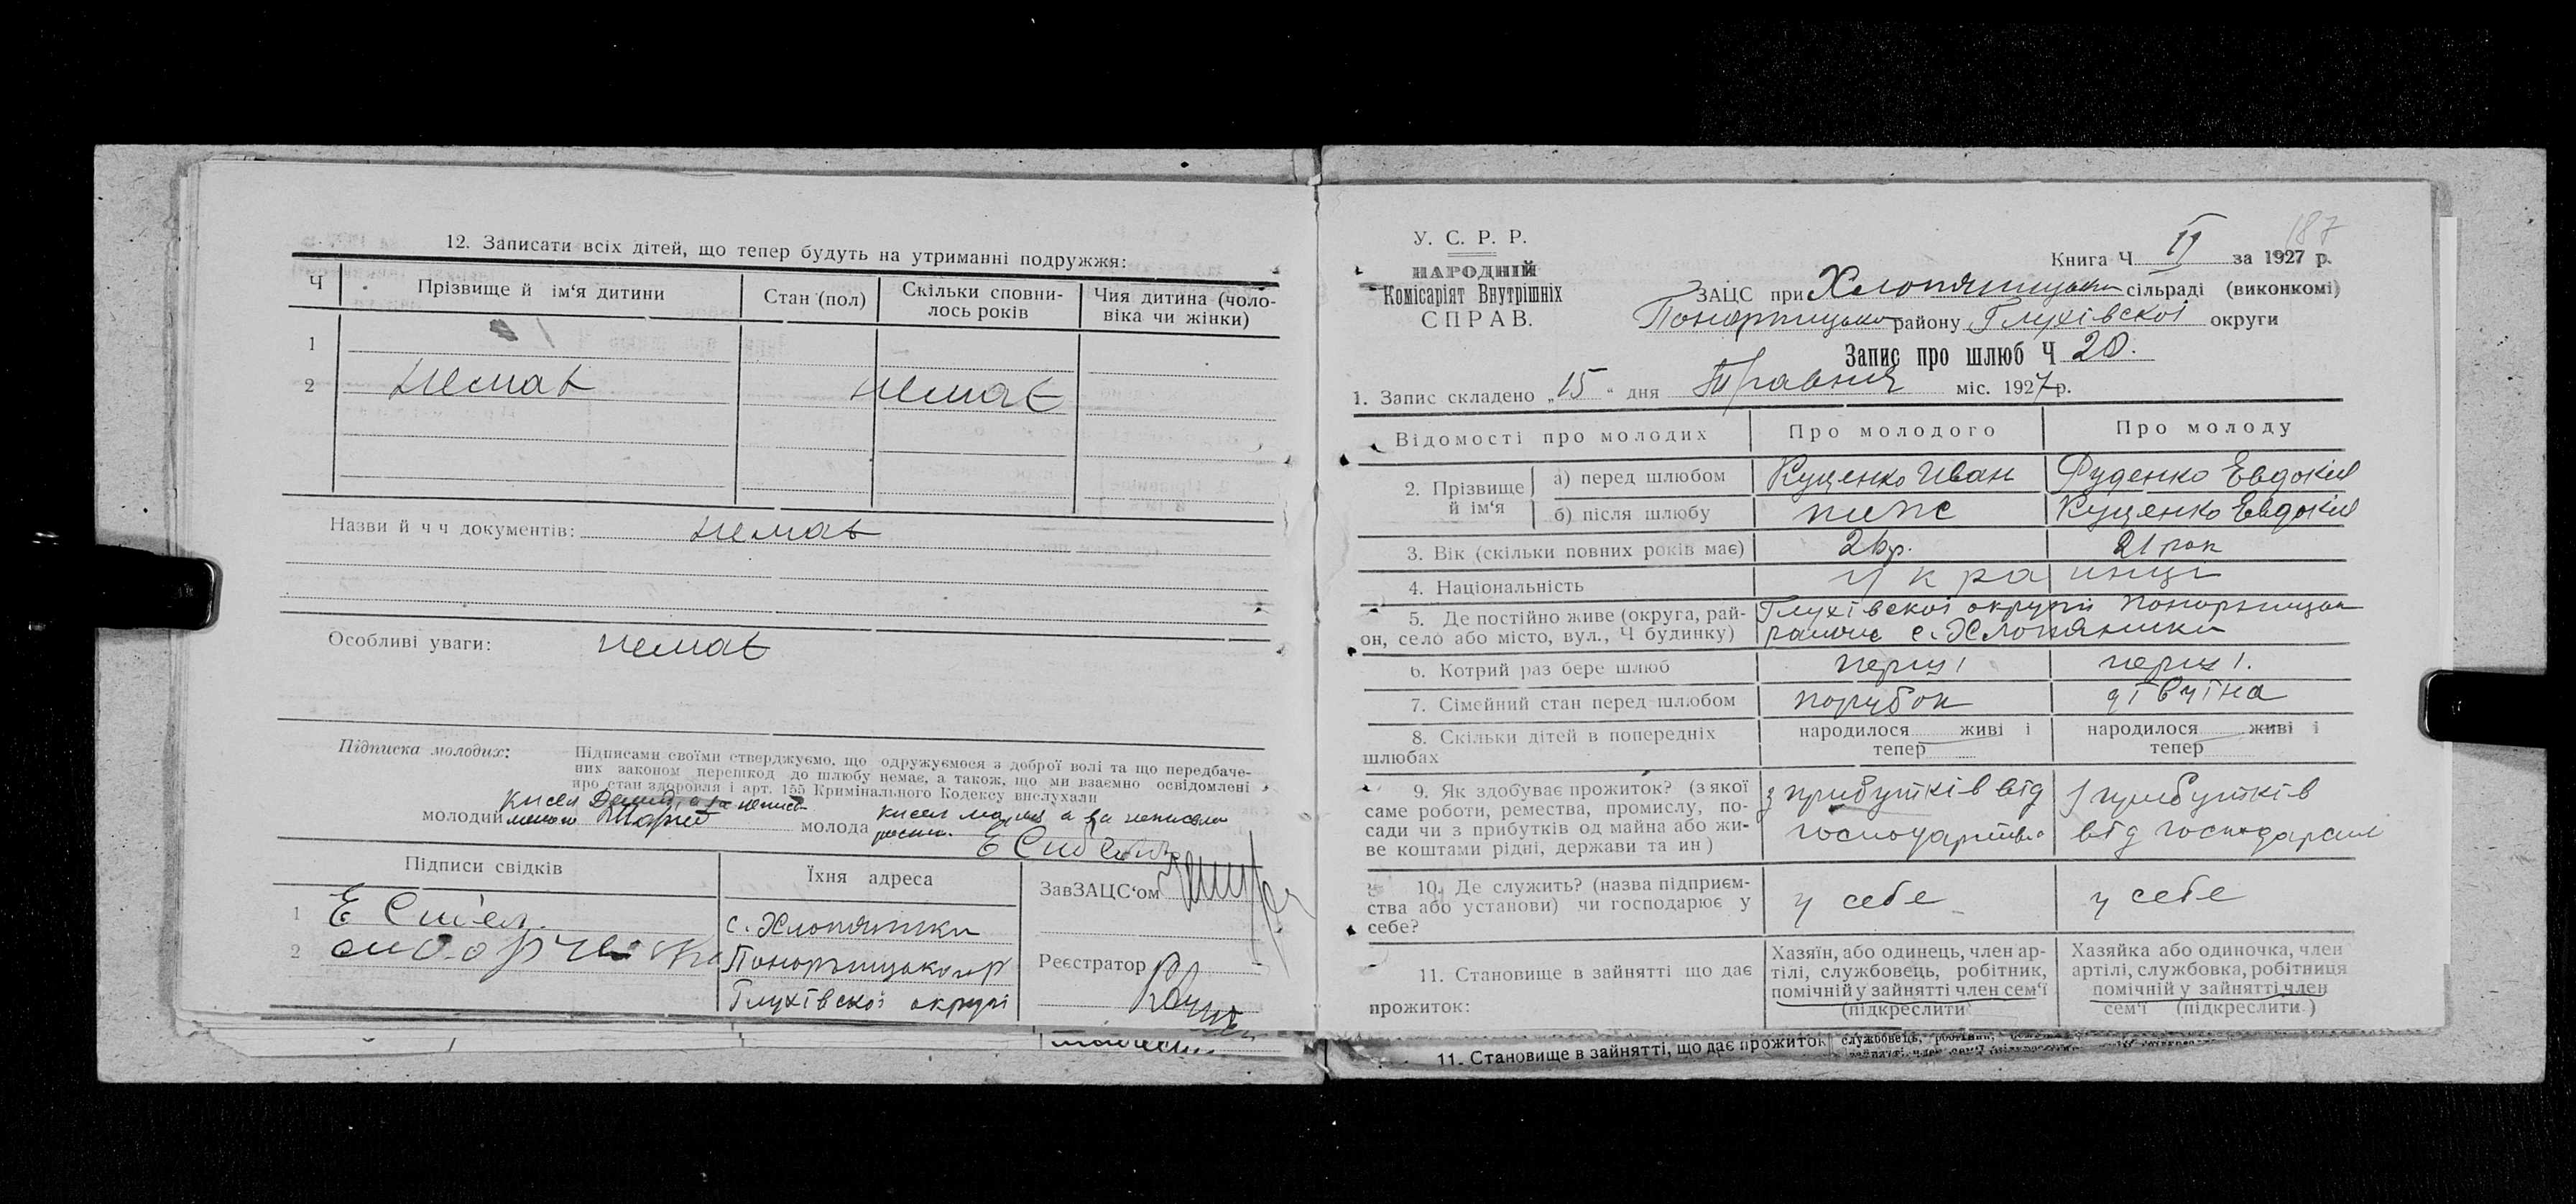 12. Записати всіх дітей, що тепер будуть на утриманні подружжя:
Ч
Прізвище й ім‘я дитини
Стан (пол)
Скільки сповни-
лось років
Чия дитина (чоло-
віка чи жінки)
1
2
немає
немає
Назви й ч ч документів: немає
Особливі уваги: немає
Підписка молодих:
Підписами своїми стверджуємо, що одружуємося з доброї волі та що передбаче-
них законом перешкод до шлюбу немає, а також, що ми взаємно освідомлені
про стан здоровля і арт. 155 Кримінального Кодексу вислухали
молодий Кисел Демид, а за
молода Кисел а за
Підписи свідків
Їхня адреса
ЗавЗАЦС‘ом
1
с. Хлопяники
2
Понорницького р
Реєстратор
Глухівскоі округи
187
У. С. Р. Р.
НАРОДНІЙ
Комісаріят Внутрішніх
СПРАВ.
Книга Ч II за 1927 р.
ЗАЦС при Хлопяницькій сільраді (виконкомі)
Понорницького району Глухівскоі округи
Запис про шлюб Ч 20.
1. Запис складено „15“ дня Травня міс. 1927 р.
Відомості про молодих
Про молодого
Про молоду
2. Прізвище й ім‘я
а) перед шлюбом
Куценко Иван
Руденко Евдокия
б) після шлюбу
Куценко Евдокия
3. Вік (скільки повних років має)
21 рок
4. Національність
украинці
5. Де постійно живе (округа, рай-
он, село або місто, вул., Ч будинку)
Глухівскоі округи Понорницьк
району с. Хлопяники
6. Котрий раз бере шлюб
перш і
перш і.
7. Сімейний стан перед шлюбом
парубок
дівчіна
8. Скільки дітей в попередніх
шлюбах
народилося живі і
тепер
народилося живі і
тепер
9. Як здобуває прожиток? (з якої
саме роботи, ремества, промислу, по-
сади чи з прибутків од майна або жи-
ве коштами рідні, держави та ин)
з прибутків від
господарства
з прибутків
від господарства
10. Де служить? (назва підприєм-
ства або установи) чи господарює у
себе?
у себе
у себе
11. Становище в зайнятті що дає
прожиток:
Хазяїн, або одинець, член ар-
тілі, службовець, робітник,
помічній у зайнятті член сем‘ї
(підкреслити
Хазяйка або одиночка, член
артілі, службовка, робітниця
помічній у зайнятті член
сем‘ї (підкреслити.)
11. Становище в зайнятті, що дає прожиток
службовець, робітник,